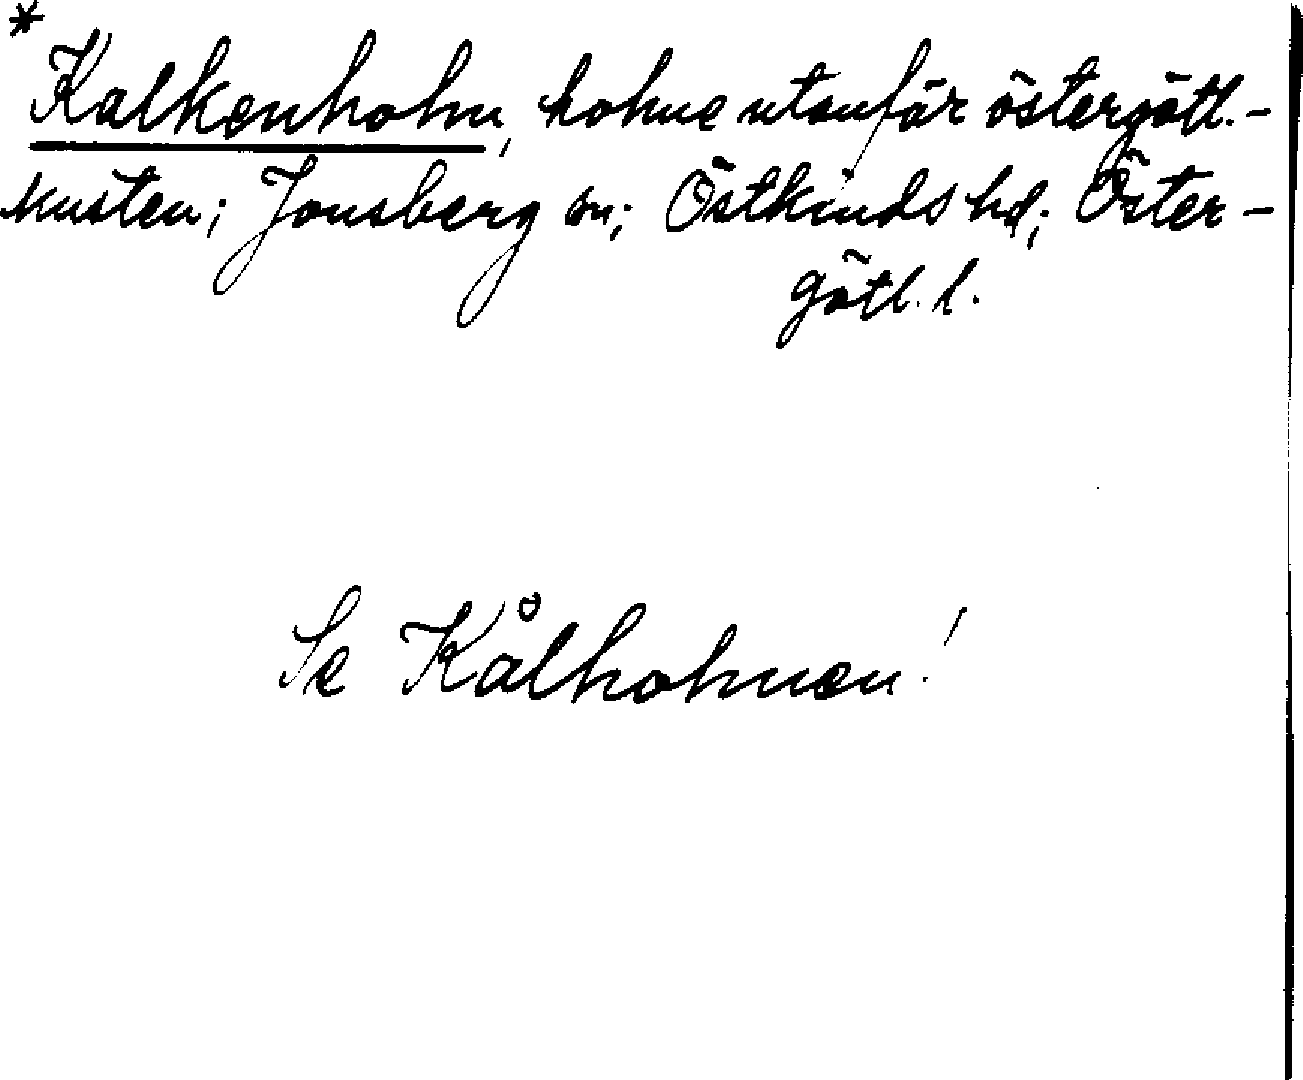 *
Kalkenholm, holme utanför östergötl.-
kusten; Jonsberg sn; Östkinds hd; Öster-
götl. l.
Se Kålholmen!